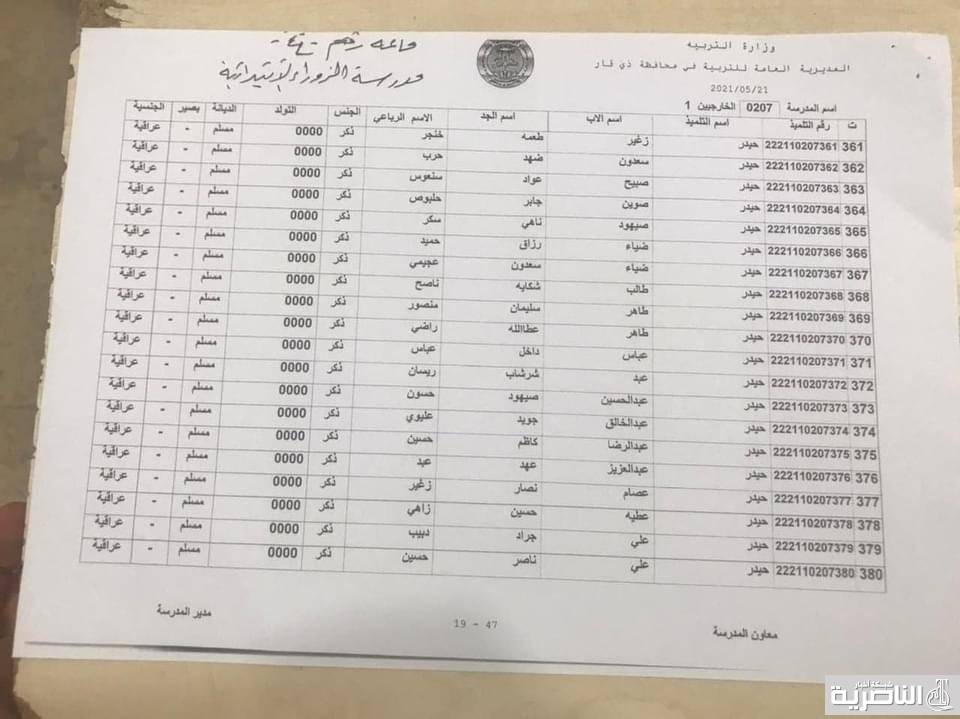 وزارة التربيه
المديرية العامة للتربية في محافظة ذي قار
2021/05/21
قاعه رقم
مدرسة الزوراء الابتدائية
اسم المدرسة 0207 الخارجيين 1
ت رقم التلميذ اسم التلميذ اسم الاب اسم الجد الاسم الرباعي الجنس التولد الديانة بصير الجنسية
361 222110207361 حيدر زغير طعمه خنجر ذكر 0000 مسلم - عراقية
362 222110207362 حيدر سعدون ضهد حرب ذكر 0000 مسلم - عراقية
363 222110207363 حيدر صبيح عواد سنعوس ذكر 0000 مسلم - عراقية
364 222110207364 حيدر صوين جابر حلبوص ذكر 0000 مسلم - عراقية
365 222110207365 حيدر صيهود ناهي سكر ذكر 0000 مسلم - عراقية
366 222110207366 حيدر ضياء رزاق حميد ذكر 0000 مسلم - عراقية
367 222110207367 حيدر ضياء سعدون عجيمي ذكر 0000 مسلم - عراقية
368 222110207368 حيدر طالب شكايه ناصح ذكر 0000 مسلم - عراقية
369 222110207369 حيدر طاهر سليمان منصور ذكر 0000 مسلم - عراقية
370 222110207370 حيدر طاهر عطاالله راضي ذكر 0000 مسلم - عراقية
371 222110207371 حيدر عباس داخل عباس ذكر 0000 مسلم - عراقية
372 222110207372 حيدر عبد شرشاب ريسان ذكر 0000 مسلم - عراقية
373 222110207373 حيدر عبدالحسين صيهود حسون ذكر 0000 مسلم - عراقية
374 222110207374 حيدر عبدالخالق جويد عليوي ذكر 0000 مسلم - عراقية
375 222110207375 حيدر عبدالرضا كاظم حسين ذكر 0000 مسلم - عراقية
376 222110207376 حيدر عبدالعزيز عهد عبد ذكر 0000 مسلم - عراقية
377 222110207377 حيدر عصام نصار زغير ذكر 0000 مسلم - عراقية
378 222110207378 حيدر عطيه حسين زاهي ذكر 0000 مسلم - عراقية
379 222110207379 حيدر علي جراد دبيب ذكر 0000 مسلم - عراقية
380 222110207380 حيدر علي ناصر حسين ذكر 0000 مسلم - عراقية
معاون المدرسة
19 - 47
مدير المدرسة
شبكة أخبار
الناصرية